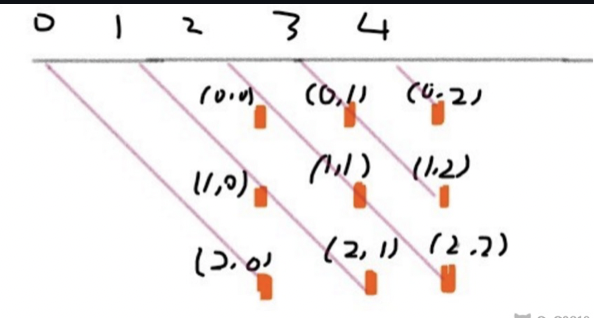 0 1 2 3 4
(0.0) (0,1) (0.2)
(1,0) (1,1) (1,2)
(2.0) (2,1) (2.2)